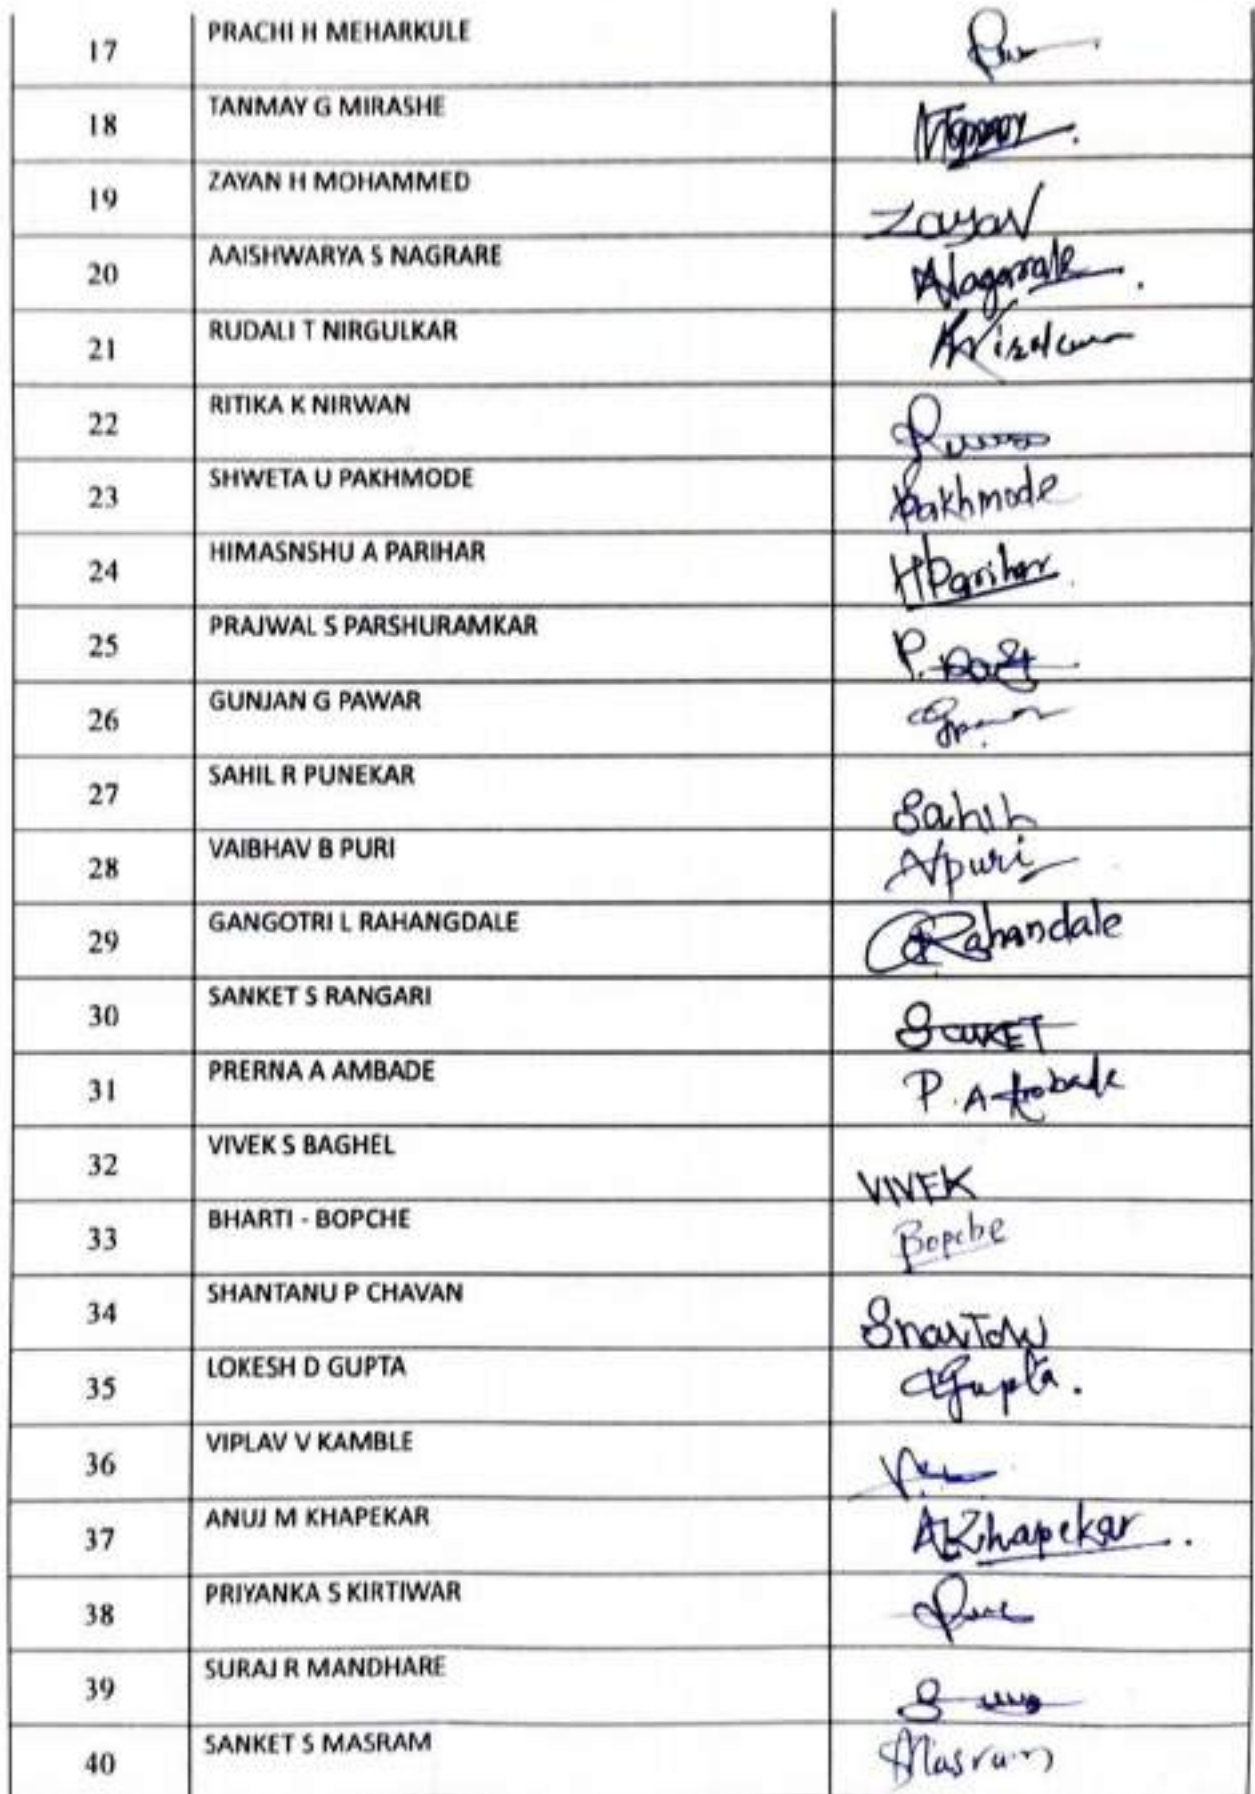 17 PRACHI H MEHARKULE
18 TANMAY G MIRASHE
19 ZAYAN H MOHAMMED Zayan
20 AAISHWARYA S NAGRARE
21 RUDALI T NIRGULKAR
22 RITIKA K NIRWAN
23 SHWETA U PAKHMODE Pakhmode
24 HIMASNSHU A PARIHAR HParihar
25 PRAJWAL S PARSHURAMKAR
26 GUNJAN G PAWAR
27 SAHIL R PUNEKAR Sahil
28 VAIBHAV B PURI Vpuri
29 GANGOTRI L RAHANGDALE GRahandale
30 SANKET S RANGARI SANKET
31 PRERNA A AMBADE P. A. Ambade
32 VIVEK S BAGHEL VIVEK
33 BHARTI - BOPCHE Bopche
34 SHANTANU P CHAVAN
35 LOKESH D GUPTA Gupta.
36 VIPLAV V KAMBLE
37 ANUJ M KHAPEKAR AKhapekar.
38 PRIYANKA S KIRTIWAR
39 SURAJ R MANDHARE
40 SANKET S MASRAM Masram